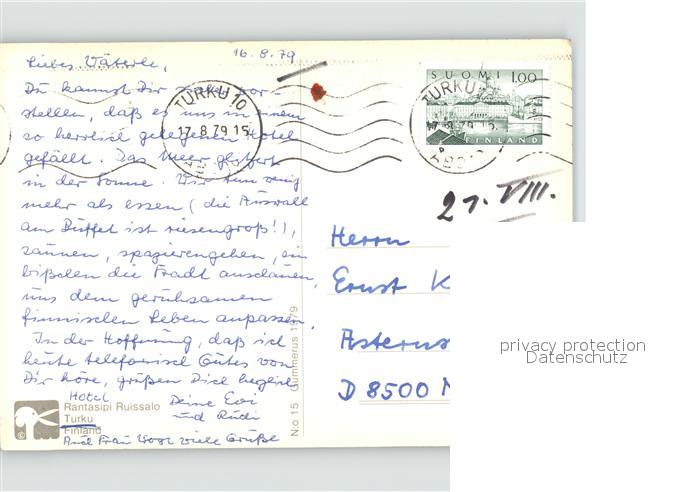 16.8.79
Liebes Väterle,
Du kannst Dir nicht vor-
stellen, daß es uns in einem
so herrlich gelegenen Hotel
gefällt. Das Meer glitzert
in der Sonne. Wir tun wenig
mehr als essen (die Auswahl
am Büffet ist riesengroß!),
saunen, spazierengehen, ein
bißchen die Stadt anschauen,
uns dem geruhsamen
finnischen Leben anpassen.
In der Hoffnung, daß ich
heute telefonisch Gutes von
Dir höre, grüßen Dich herzlich
Deine Evi
und Rudi
Hotel
Rantasipi Ruissalo
Turku
Finland
Auch Frau viele Grüße
N:o 15 Gummerus 1979
TURKU 10
17.8.79 15
ÅBO
SUOMI 1,00
FINLAND
TURKU
8.79 15
ÅBO
21. VIII.
Herrn
Ernst K
Asterns
D 8500 N
privacy protection
Datenschutz